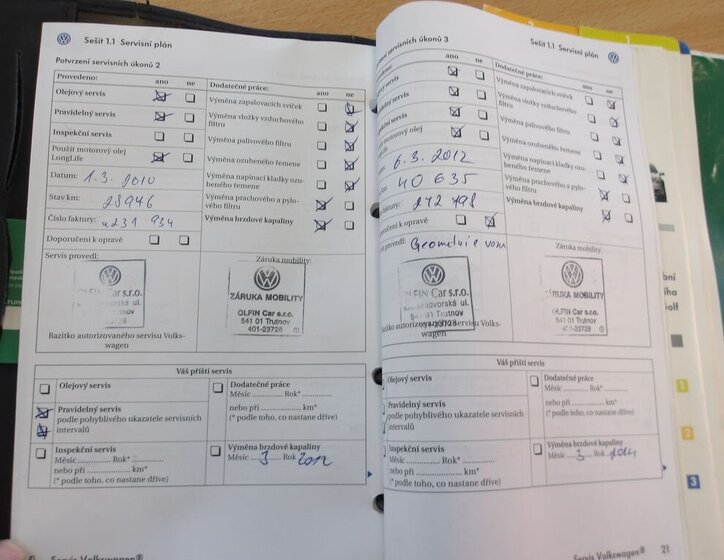 Sešit 1.1 Servisní plán
Potvrzení servisních úkonů 2
Provedeno: ano ne
Olejový servis
Pravidelný servis
Inspekční servis
Použit motorový olej
LongLife
Datum: 1.3. 2010
Stav km: 28946
Číslo faktury: 934
Doporučení k opravě
Servis provedl:
Dodatečné práce: ano ne
Výměna zapalovacích svíček
Výměna vložky vzduchového
filtru
Výměna palivového filtru
Výměna ozubeného řemene
Výměna napínací kladky ozu-
beného řemene
Výměna prachového a pylo-
vého filtru
Výměna brzdové kapaliny
Záruka mobility:
OLFIN Car s.r.o.
ZÁRUKA MOBILITY
OLFIN Car s.r.o.
541 01 Trutnov
401-23728
Razítko autorizovaného servisu Volks-
wagen
Váš příští servis
Olejový servis
Pravidelný servis
podle pohyblivého ukazatele servisních
intervalů
Inspekční servis
Měsíc Rok*
nebo při km*
(* podle toho, co nastane dříve)
Dodatečné práce
Měsíc Rok*
nebo při km*
(* podle toho, co nastane dříve)
Výměna brzdové kapaliny
Měsíc 3 Rok 2012
Servis Volkswagen®
Sešit 1.1 Servisní plán
servisních úkonů 3
ano ne
servis
servis
servis
motorový olej
6.3. 2012
40 635
272 498
k opravě
provedl: Geometrie
Dodatečné práce: ano ne
Výměna zapalovacích svíček
Výměna vložky vzduchového
filtru
Výměna palivového filtru
Výměna ozubeného řemene
Výměna napínací kladky ozu-
beného řemene
Výměna prachového a pylo-
vého filtru
Výměna brzdové kapaliny
Záruka mobility:
Car s.r.o.
ZÁRUKA MOBILITY
Car s.r.o.
541 01 Trutnov
401-23728
Razítko autorizovaného servisu Volks-
wagen
Váš příští servis
Olejový servis
Pravidelný servis
podle pohyblivého ukazatele servisních
intervalů
Inspekční servis
Měsíc Rok*
nebo při km*
(* podle toho, co nastane dříve)
Dodatečné práce
Měsíc Rok*
nebo při km*
(* podle toho, co nastane dříve)
Výměna brzdové kapaliny
Měsíc 3 Rok 2014
Servis Volkswagen®
21
1
2
3